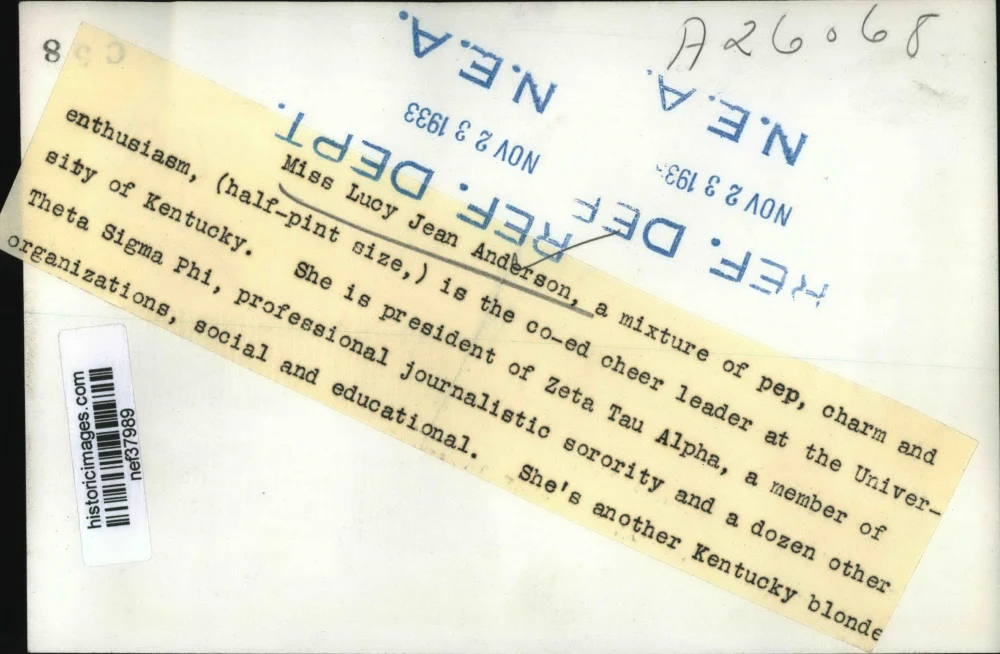 A26068
8
N.E.A.
NOV 23 1933
REF. DEPT.
N.E.A.
NOV 23 193
REF. DE
Miss Lucy Jean Anderson, a mixture of pep, charm and
enthusiasm, (half-pint size,) is the co-ed cheer leader at the Univer-
sity of Kentucky. She is president of Zeta Tau Alpha, a member of
Theta Sigma Phi, professional journalistic sorority and a dozen other
organizations, social and educational. She's another Kentucky blonde
historicimages.com
nef37989